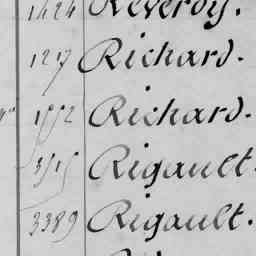 1424 Reverdy.
1217 Richard.
1772 Richard.
3515 Rigault.
3389 Rigault.